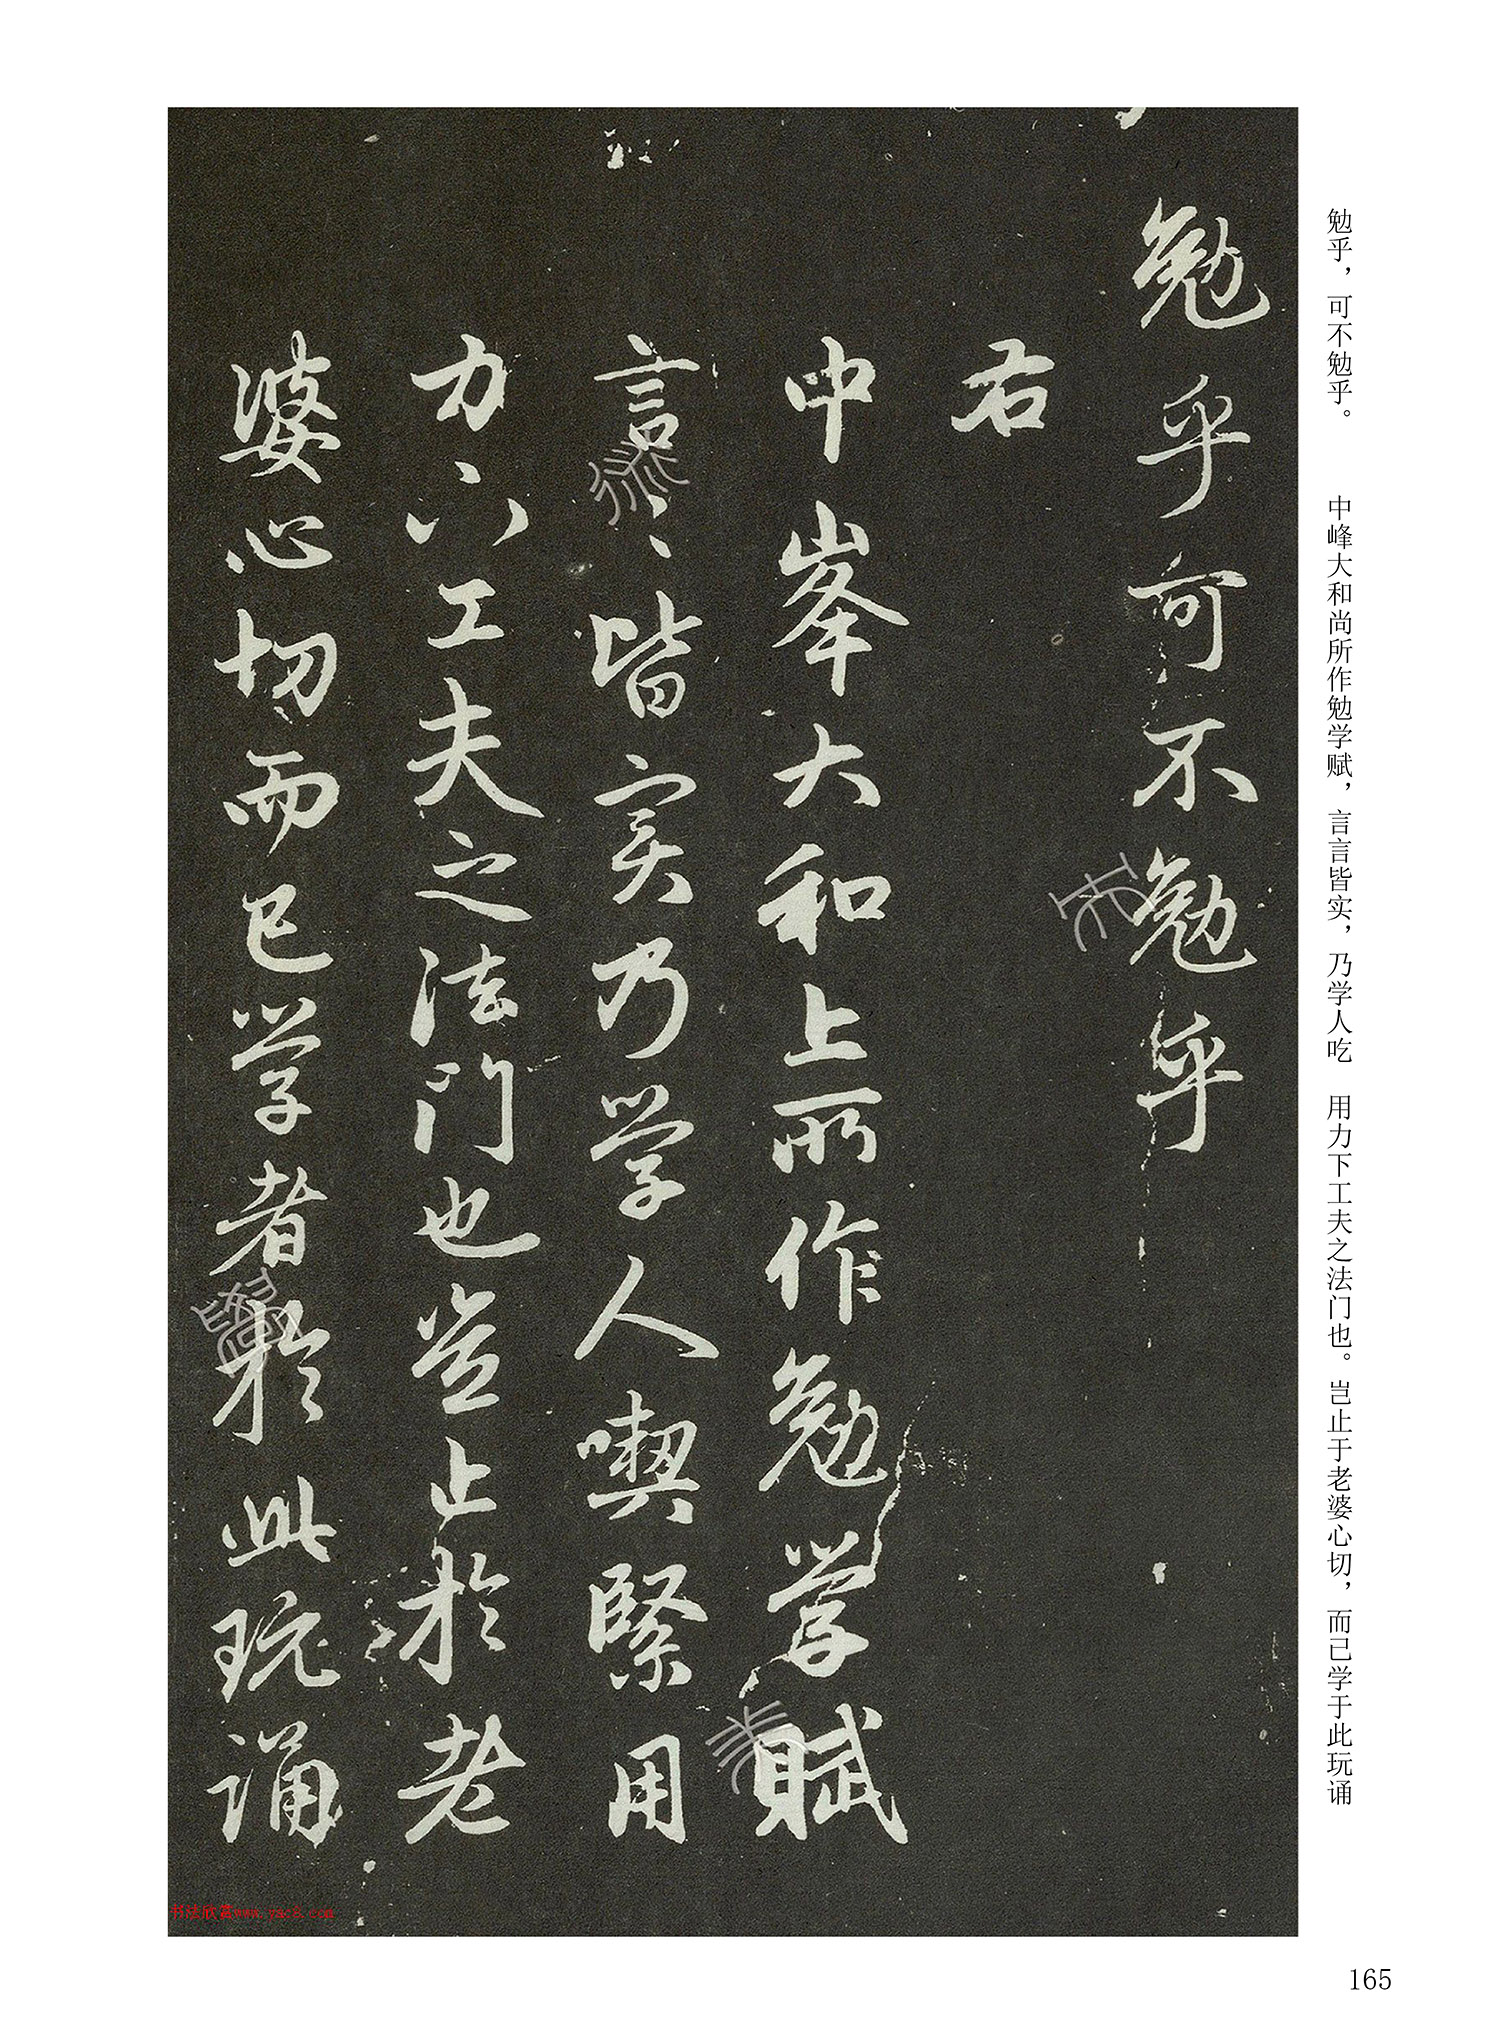 勉乎，可不勉乎。　中峰大和尚所作勉学赋，言言皆实，乃学人吃　用力下工夫之法门也。岂止于老婆心切，而已学于此玩诵
勉乎可不勉乎
右
中峯大和上所作勉学賦
言〻皆实乃学人喫緊用
力下工夫之法门也豈止於老
婆心切而已学者於此玩誦
书法欣赏www.yac8.com
165